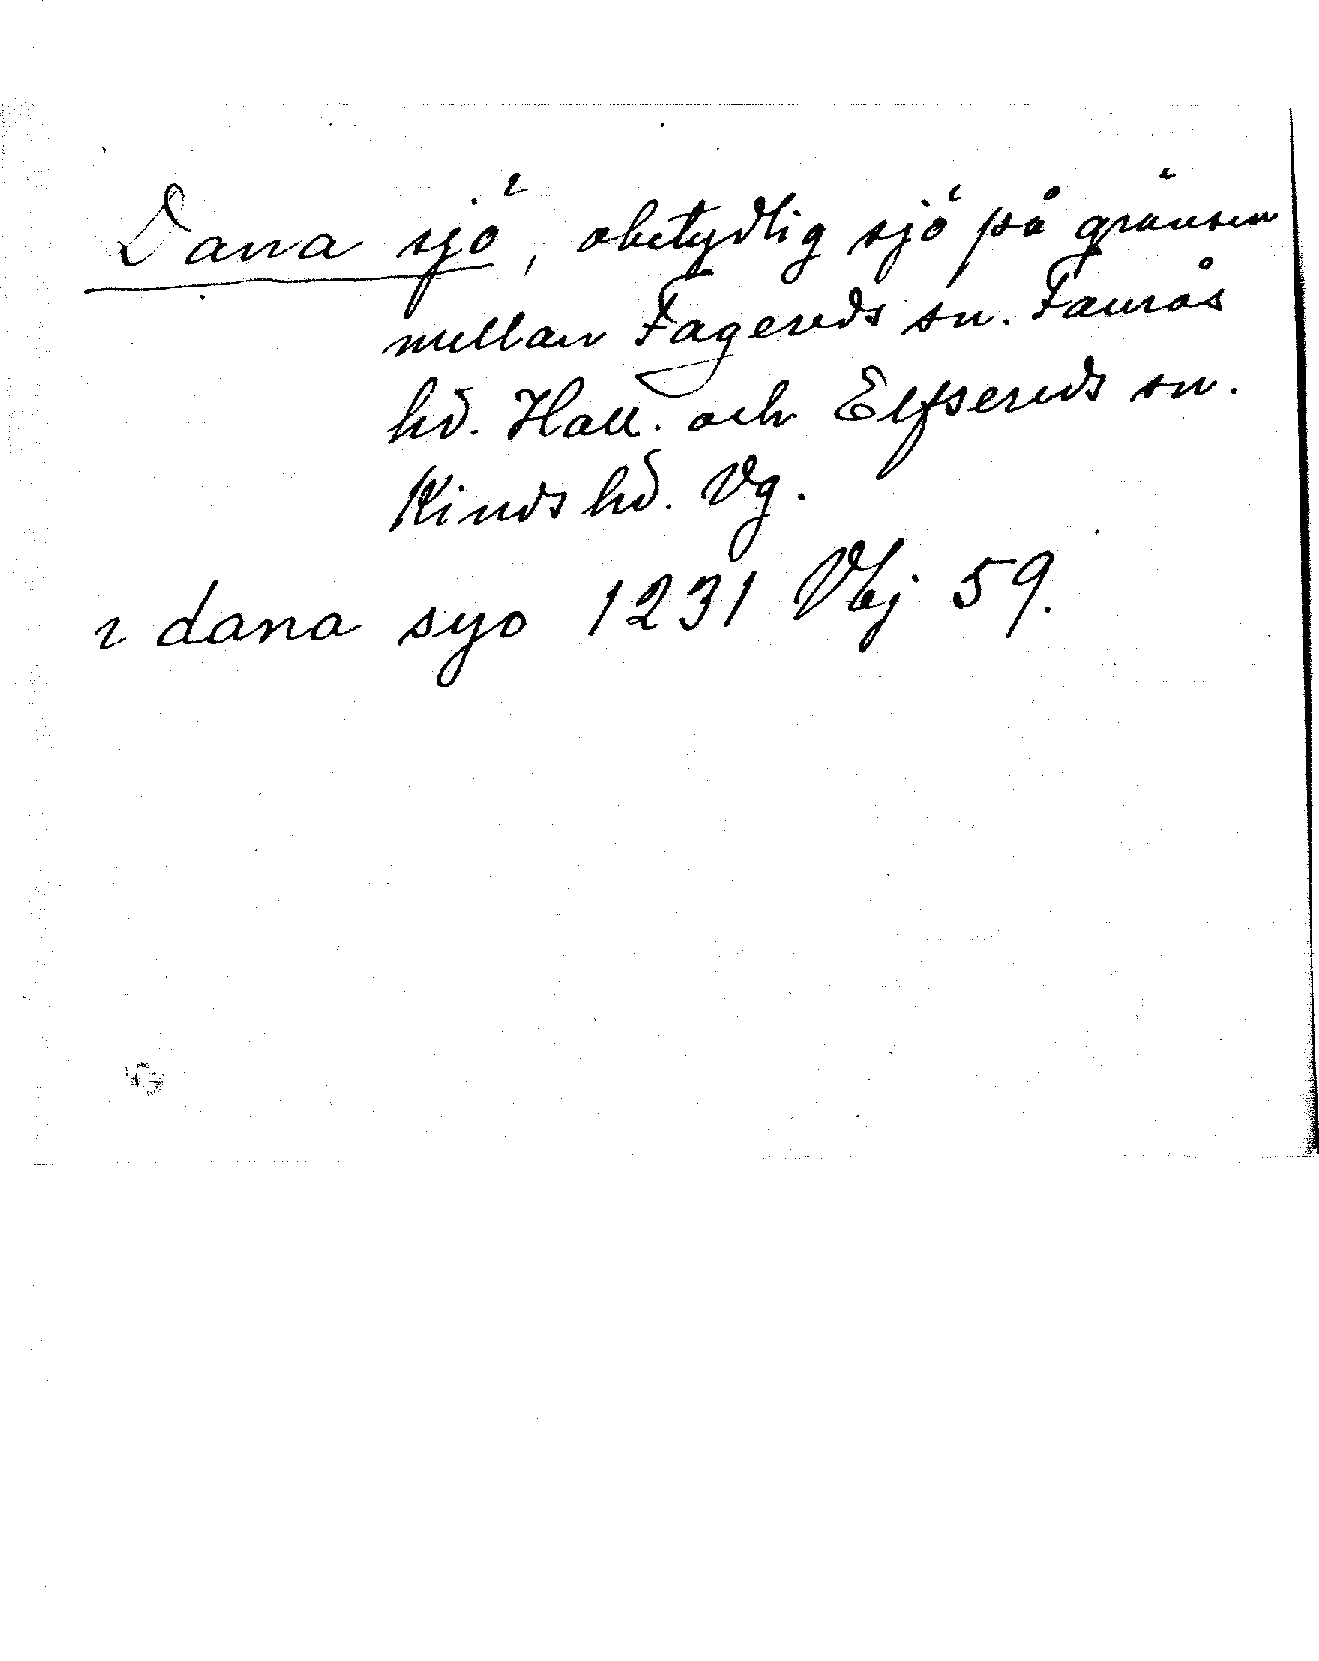 Dana sjö, obetydlig sjö på gränsen
mellan Fagereds sn. Faurås
hd. Hall. och Elfsereds sn.
Kinds hd. Vg.
i dana syo 1231 Vbj 59.